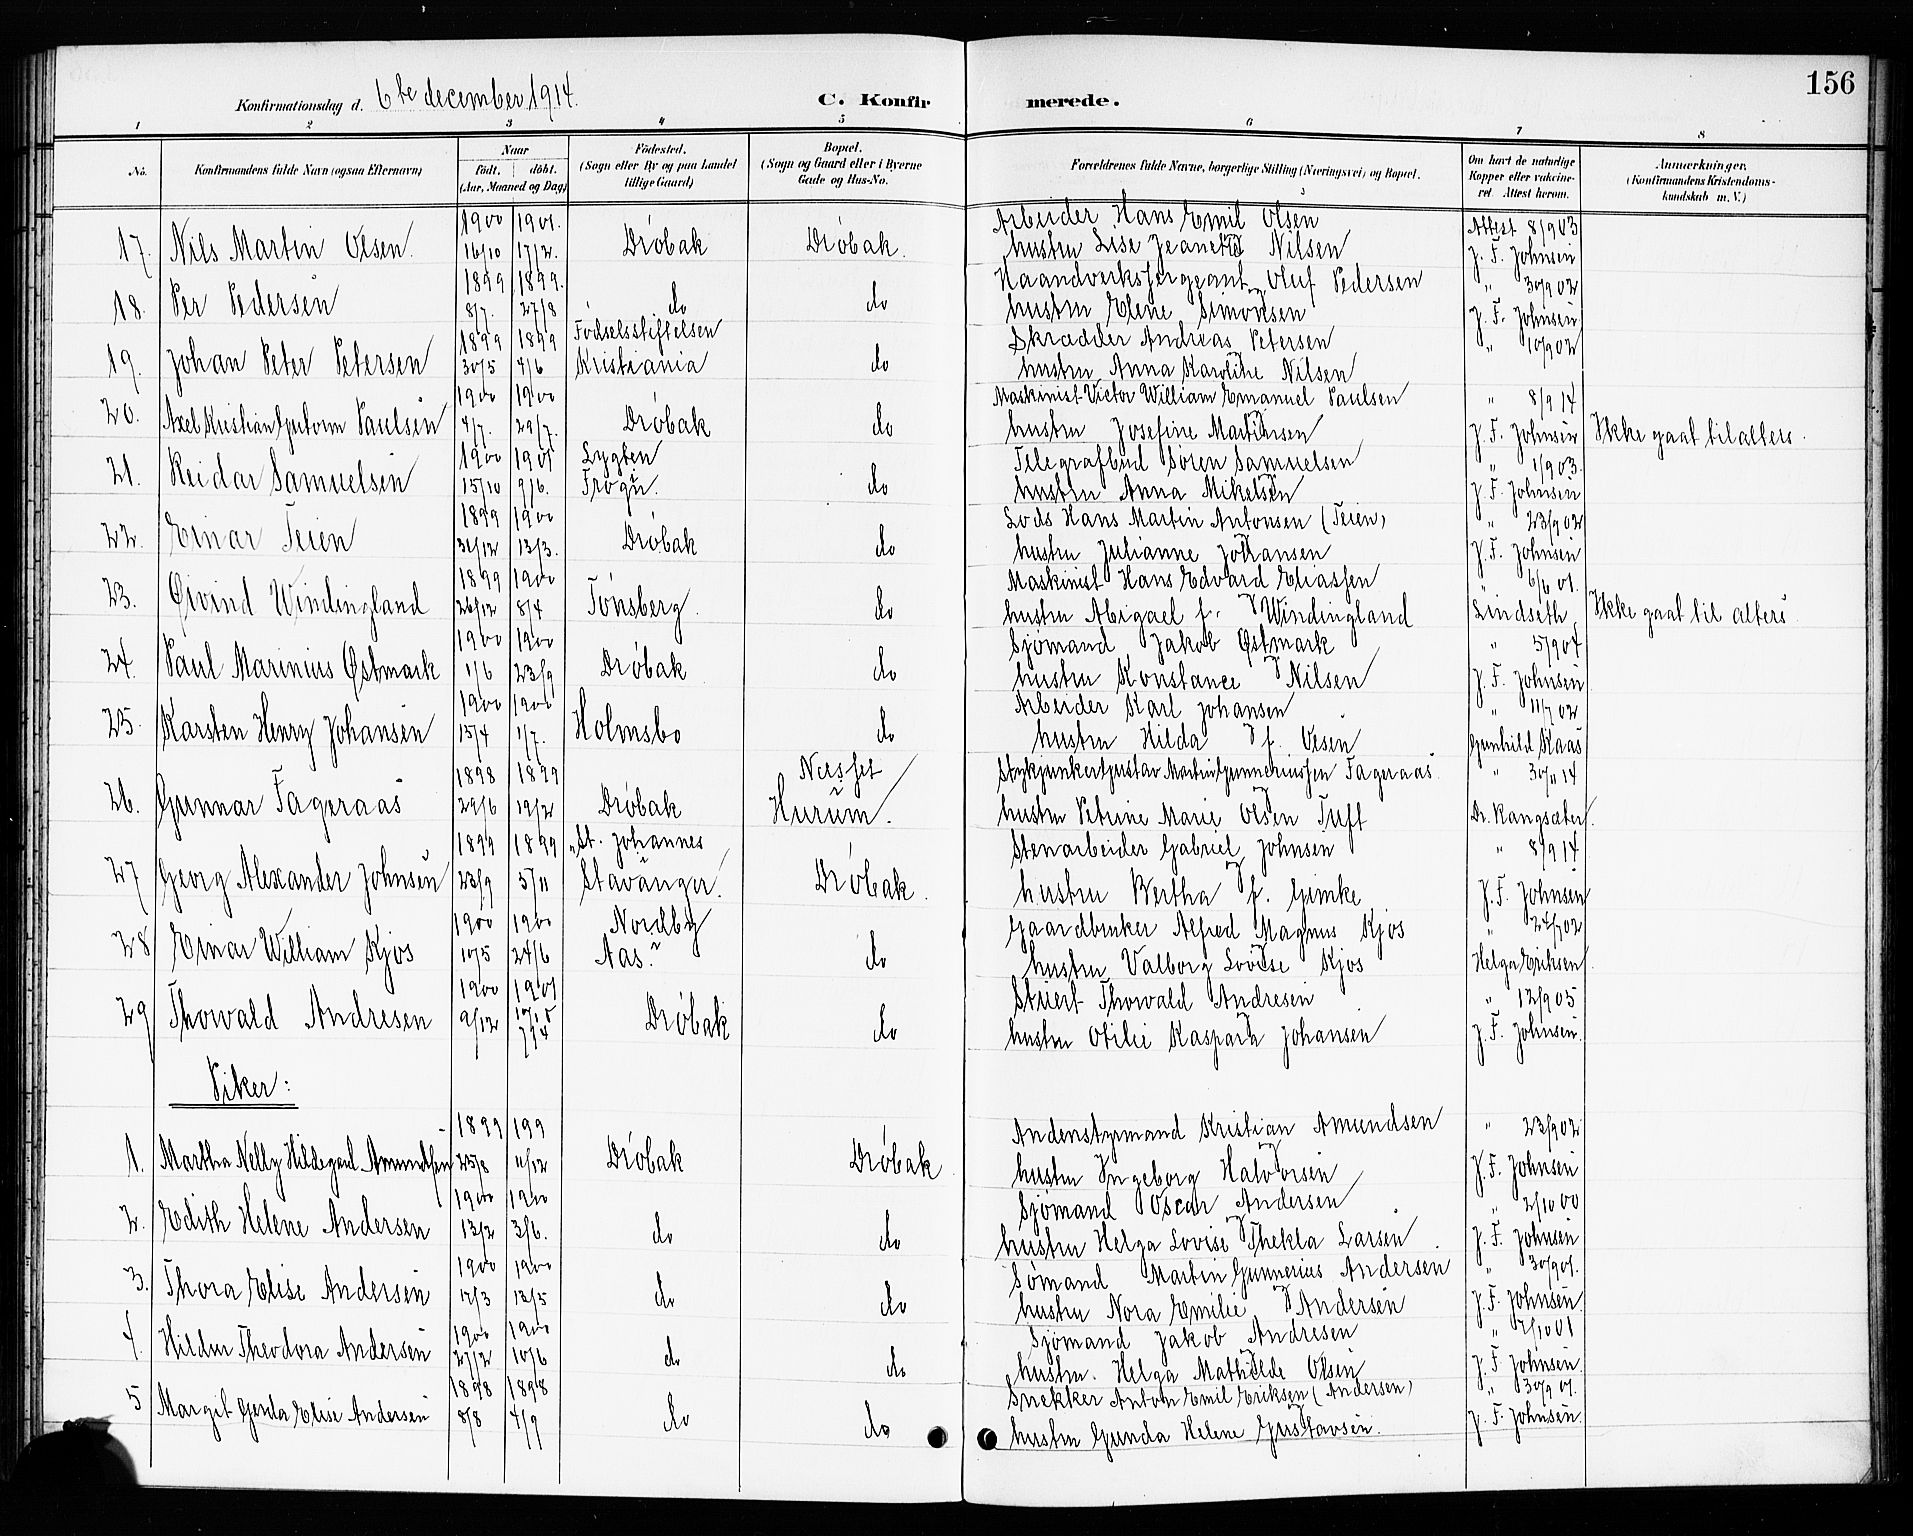 156
Konfirmationsdag d. 6te december 1914.
C. Konfirmerede.
1 2 3 4 5 6 7 8
No. Konfirmandens fulde Navn (ogsaa Efternavn) Naar født. døbt. (Aar, Maaned og Dag) Fødested. (Sogn eller By og paa Landet tillige Gaard) Bopæl. (Sogn og Gaard eller i Byerne Gade og Hus-No. Forældrenes fulde Navne, borgerlige Stilling (Næringsvei) og Bopæl. Om havt de naturlige Kopper eller vaccineret. Attest herom. Anmærkninger. (Konfirmandens Kristendomskundskab m. V.)
1900 1901. Arbeider Hans Emil Olsen Attest 8/9 03
17. Nils Martin Olsen. 16/10 17/2. Drøbak Drøbak. hustru Lise Jeanette Nilsen J. F. Johnsen
1899 1899. Haandverksfergeant Oluf Pedersen " 30/9 02
18. Per Pedersen 8/7. 27/8 do do hustru Elene Simonsen J. F. Johnsen
1899 1899 Fødselsstiftelsen Skrædder Andreas Petersen " 10/9 02
19. Johan Peter Petersen 30/5 4/6 Kristiania do hustru Anna Karoline Nilsen
1900 1900 Maskinist Victor William Emanuel Paulsen " 8/9 14
20. Axel Kristian Guttorm Paulsen 4/7. 29/7. Drøbak do hustru Josefine Martinsen J. F. Johnsen Ikke gaat til alters.
1900 1901 Lygten Telegrafbud Søren Samuelsen " 1/9 03.
21. Reidar Samuelsen 15/10 9/6. Frogn. do hustru Anna Mikelsen J. F. Johnsen
1899 1900 Lods Hans Martin Antonsen (Teien) " 23/9 02
22. Einar Teien 31/12 13/3. Drøbak do hustru Julianne Johansen J. F. Johnsen
1899 1900 Maskinist Hans Edvard Eliassen " 6/6 01.
23. Øivind Windingland 26/12 8/4 Tønsberg. do hustru Abigael f. Windingland Lindseth Ikke gaat til alters
1900 1900 Sjømand Jakob Østmark " 5/9 04
24. Paul Marinius Østmark 1/6 23/9 Drøbak do hustru Konstance Nilsen J. F. Johnsen
1900 1900 Arbeider Karl Johansen " 11/7 02
25. Karsten Henry Johansen 15/4 1/7. Holmsbo do hustru Hilda f. Olsen Gunhild Kaas
1898 1899 Næsset Stykjunker Gustav Martin Gunneriussen Fageraas. " 30/11 14
26. Gunnar Fageraas 29/6 19/2 Drøbak Hurum. hustru Petrine Marie Olsen Tuft Dr. Kangsæter.
1899 1899 "St. Johannes Stenarbeider Gabriel Johnsen " 8/9 14
27 Georg Alexander Johnsen 23/9 5/11 Stavanger. Drøbak. hustru Bertha f. Gimke J. F. Johnsen
1900 1900 Nordby Gaardbruker Alfred Magnus Kjos " 24/7 02
28 Einar William Kjos 10/5 24/6 Aas. do hustru Valborg Lovise Kjos Helga Eriksen
1900 1901 Stuert Thorvald Andresen " 12/9 05
29 Thorvald Andresen 9/12 7/4 Drøbak do hustru Otilie Kaspara Johansen J. F. Johnsen.
Piker:
1899 199 Andenstyrmand Kristian Amundsen " 23/9 02
1. Martha Nelly Hildegard Amundsen 25/8 11/12 Drøbak Drøbak hustru Ingeborg Halvorsen J. F. Johnsen
1900 1900 Sjømand Oscar Andersen " 2/10 00
2. Edith Helene Andersen 13/2 3/6. do do hustru Helga Lovise Thekla Larsen J. F. Johnsen
1900 1900 Sømand Martin Gunnerius Andersen " 30/9 01.
3. Thora Elise Andersen 17/3 13/5 do do hustru Nora Emilie Andersen J. F. Johnsen.
1900 1900 Sjømand Jakob Andresen " 2/10 01
4. Hildur Theodora Andersen 27/2 10/6 do do hustru. Helga Mathilde Olsen J. F. Johnsen.
1898 1898 Snekker Anton Emil Eriksen (Andersen) " 30/9 01.
5 Margit Gerda Elise Andersen 8/8 4/9 do do hustru Gunda Helene Gustavsen. J. F. Johnsen.